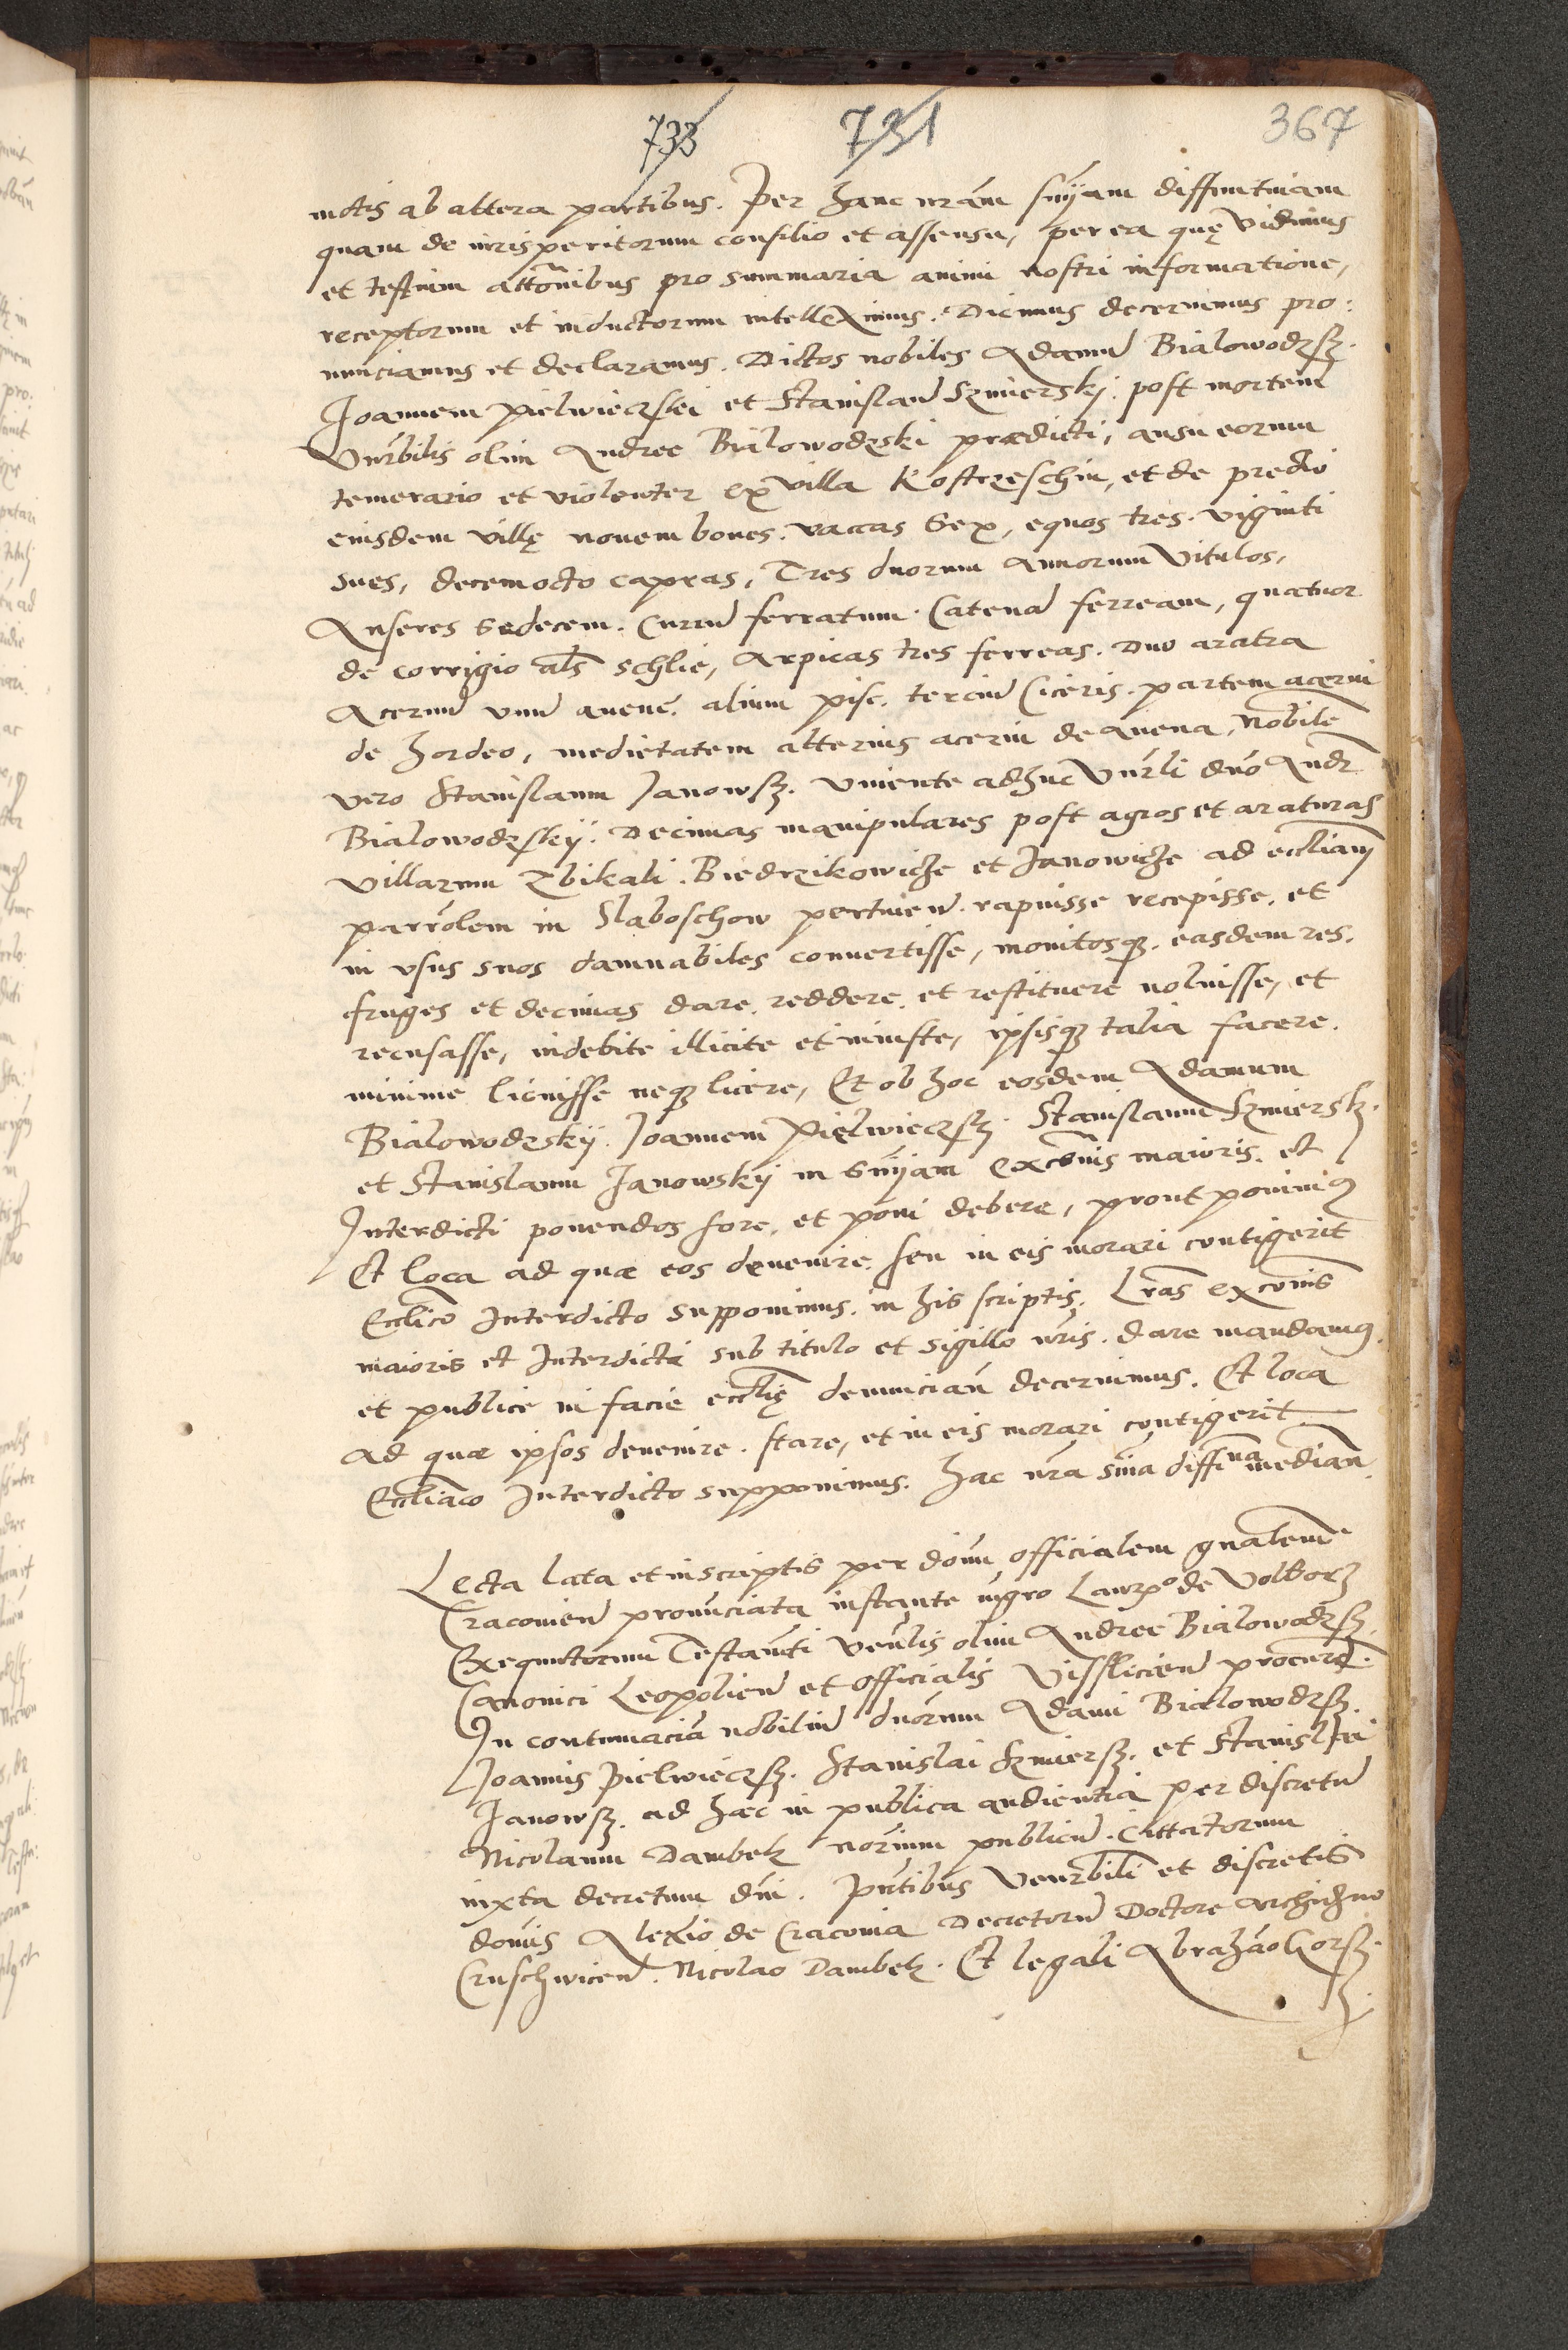 733 731 367
inctis ab altera partibus. Per hanc nrãm snÿam diffinitiuam
quam de iurisperitorum consilio et assensu, per ea quę vidimus
et testium atto͂nibus pro summaria animi nostri informatione,
receptorum et inductorum intelleximus. Dicimus decernimus pro:
nunciamus et declaramus. Dictos nobiles Adamũ Bialowodzsꝫ.
Joannem Pielwieczski et Stanislaũ Szmierskj. post mortem
Vnr̃bilis olim Andree Bialowodzski prædicti, ausu eorum
temerario et violenter ex villa Kostrzeschin, et de predio
eiusdem villę nouem boues. vaccas Sex, equos tres. viginti
sues, decemocto capras, Tres duorum Annorum Vitulos,
Anseres Sedecem. Currũ ferratum. Catenã ferream, quatuor
de corrigio als̃ schlie, Arpicas tres ferreas. Duo aratra
Aceruũ vnũ auene. alium pise. terciũ Ciceris. partem acerui
de hordeo, medietatem alterius acerui de Auena, Nobilẽ
vero Stanislaum Janowsꝫ. viuente adhuc Vnr̃li dnõ Andr̃
Bialowodzskÿ. Decimas manipulares post agros et araturas
villarum Zbikali. Biedrzikowicze et Janowicze ad eccliam̃
parrõlem in Slaboschow pertineñ. rapuisse recepisse, et
in vsus suos damnabiles conuertisse, monitosqꝫ. easdem res.
fruges et decimas dare. reddere. et restituere noluisse, et
recusasse, indebite illicite et iniuste, ipsisqꝫ talia facere.
minime licuisse neqꝫ licere, Et ob hoc eosdem Adamum
Bialowodzskÿ. Joannem Pielwieczsꝫ. Stanislaum Szmierskꝫ.
et Stanislaum Janowskÿ in Snÿam excõnis maioris. et
Interdicti ponendos fore, et poni debere, prout ponimꝰ
Et loca ad quæ eos deuenire. seu in eis morari contigerit
Ecclicõ Interdicto supponimus. in his scriptis. Lrãs excõnis
maioris et Interdicti sub titulo et sigillo nr̃is. dare mandamꝰ.
et publice in facie ecclię denunciañ decernimus. Et loca
ad quæ ipsos deuenire. stare, et in eis morari contigerit
Eccliãco Interdicto supponimus. hac nr̃a snĩa diffi^na mediañ.
Lecta lata et in scriptis per dõnu officialem gnãlem
Cracouieñ pronũciata instante mgr̃o Laurẽo de Volborz
Exequutorum Testamẽti venl̃is olim Andree Bialowodzsꝫ.
Canonici Leopolieñ et Officialis Vissliceñ procurẽ.
In contumaciã nobiliũ dnõrum Adami Bialowodzsꝫ.
Joannis Pielwieczsꝫ. Stanislai Szmiersꝫ. et Stanislai
Janowsꝫ. ad hæc in publica audientia per discretũ
Nicolaum Dambek nor̃ium publicũ. Cittatorum
iuxta decretum dñi. Pñtibus Venr̃bili et discretis
dõnis Alexio de Cracouia Decretorũ Doctore Archidno
Cruschwiceñ. Nicolao Dambek. Et legali Abrahão Gorsꝫ.